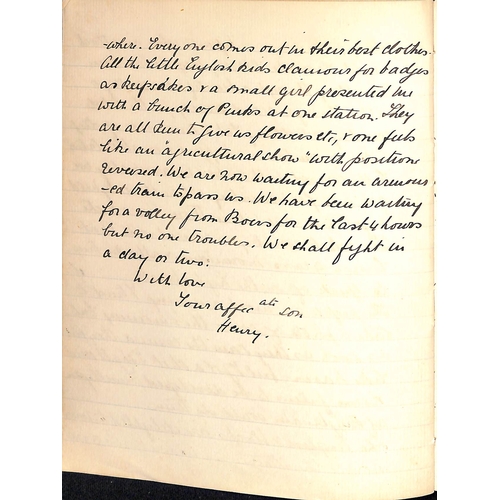 -where. Everyone comes out in their best clothes.
All the little English kids clamour for badges
as keepsakes & a small girl presented me
with a bunch of Pinks at one station. They
are all keen to give us flowers etc, & one feels
like an "agricultural show" with positions
reversed. We are now waiting for an armour
-ed train to pass us. We have been waiting
for a volley from Boers for the last 4 hours
but no one troubles. We shall fight in
a day or two.
With love
Your affec ate son
Henry.